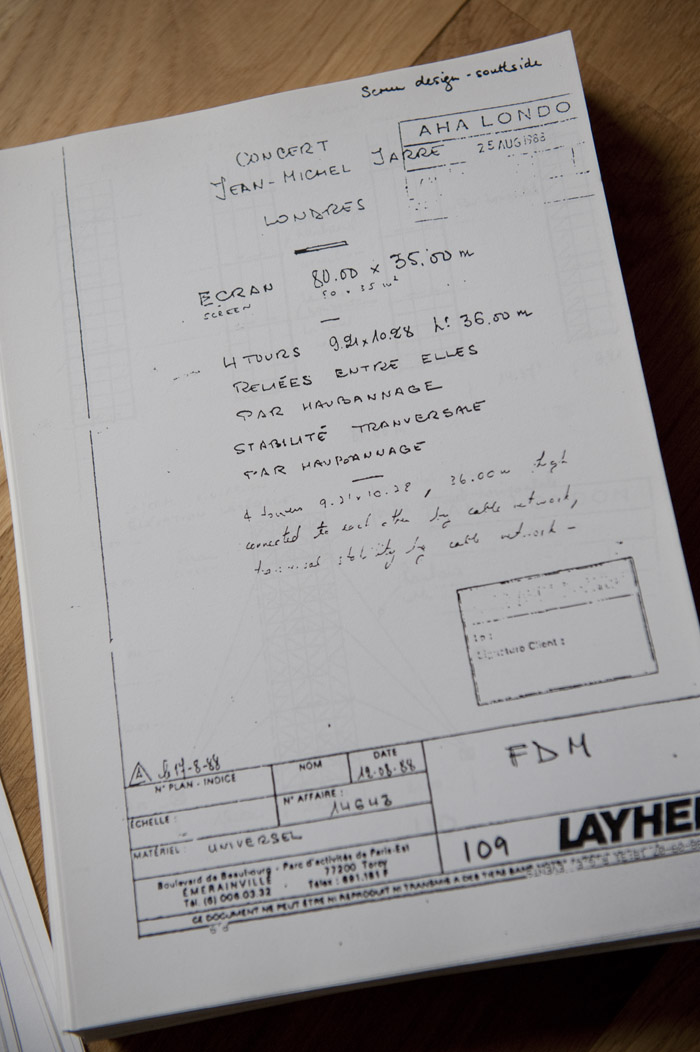 Screen design - southside
AHA LONDO
25 AUG 1988
CONCERT
JEAN-MICHEL JARRE
LONDRES
ECRAN 80.00 x 35.00 m
SCREEN
4 TOURS 9.21x10.28 h: 36.00 m
RELIÉES ENTRE ELLES
PAR HAUBANNAGE
STABILITÉ TRANVERSALE
PAR HAUBANNAGE
4 towers 9.21x10.28, 36.00m high
connected to each other by cable network,
stability by cable network -
Signature Client :
A 17-8-88
N° PLAN - INDICE
NOM
DATE
12.08.88
FDM
ÉCHELLE :
N° AFFAIRE :
MATÉRIEL : UNIVERSEL
109
LAYHE
Boulevard de Beaubourg - Parc d'activités de Paris-Est
ÉMERAINVILLE 77200 Torcy
Tél. (6) 006.03.32 Télex :
CE DOCUMENT NE PEUT ÊTRE NI REPRODUIT NI TRANSMIS A DES TIERS SANS